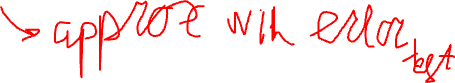 → approx with error test